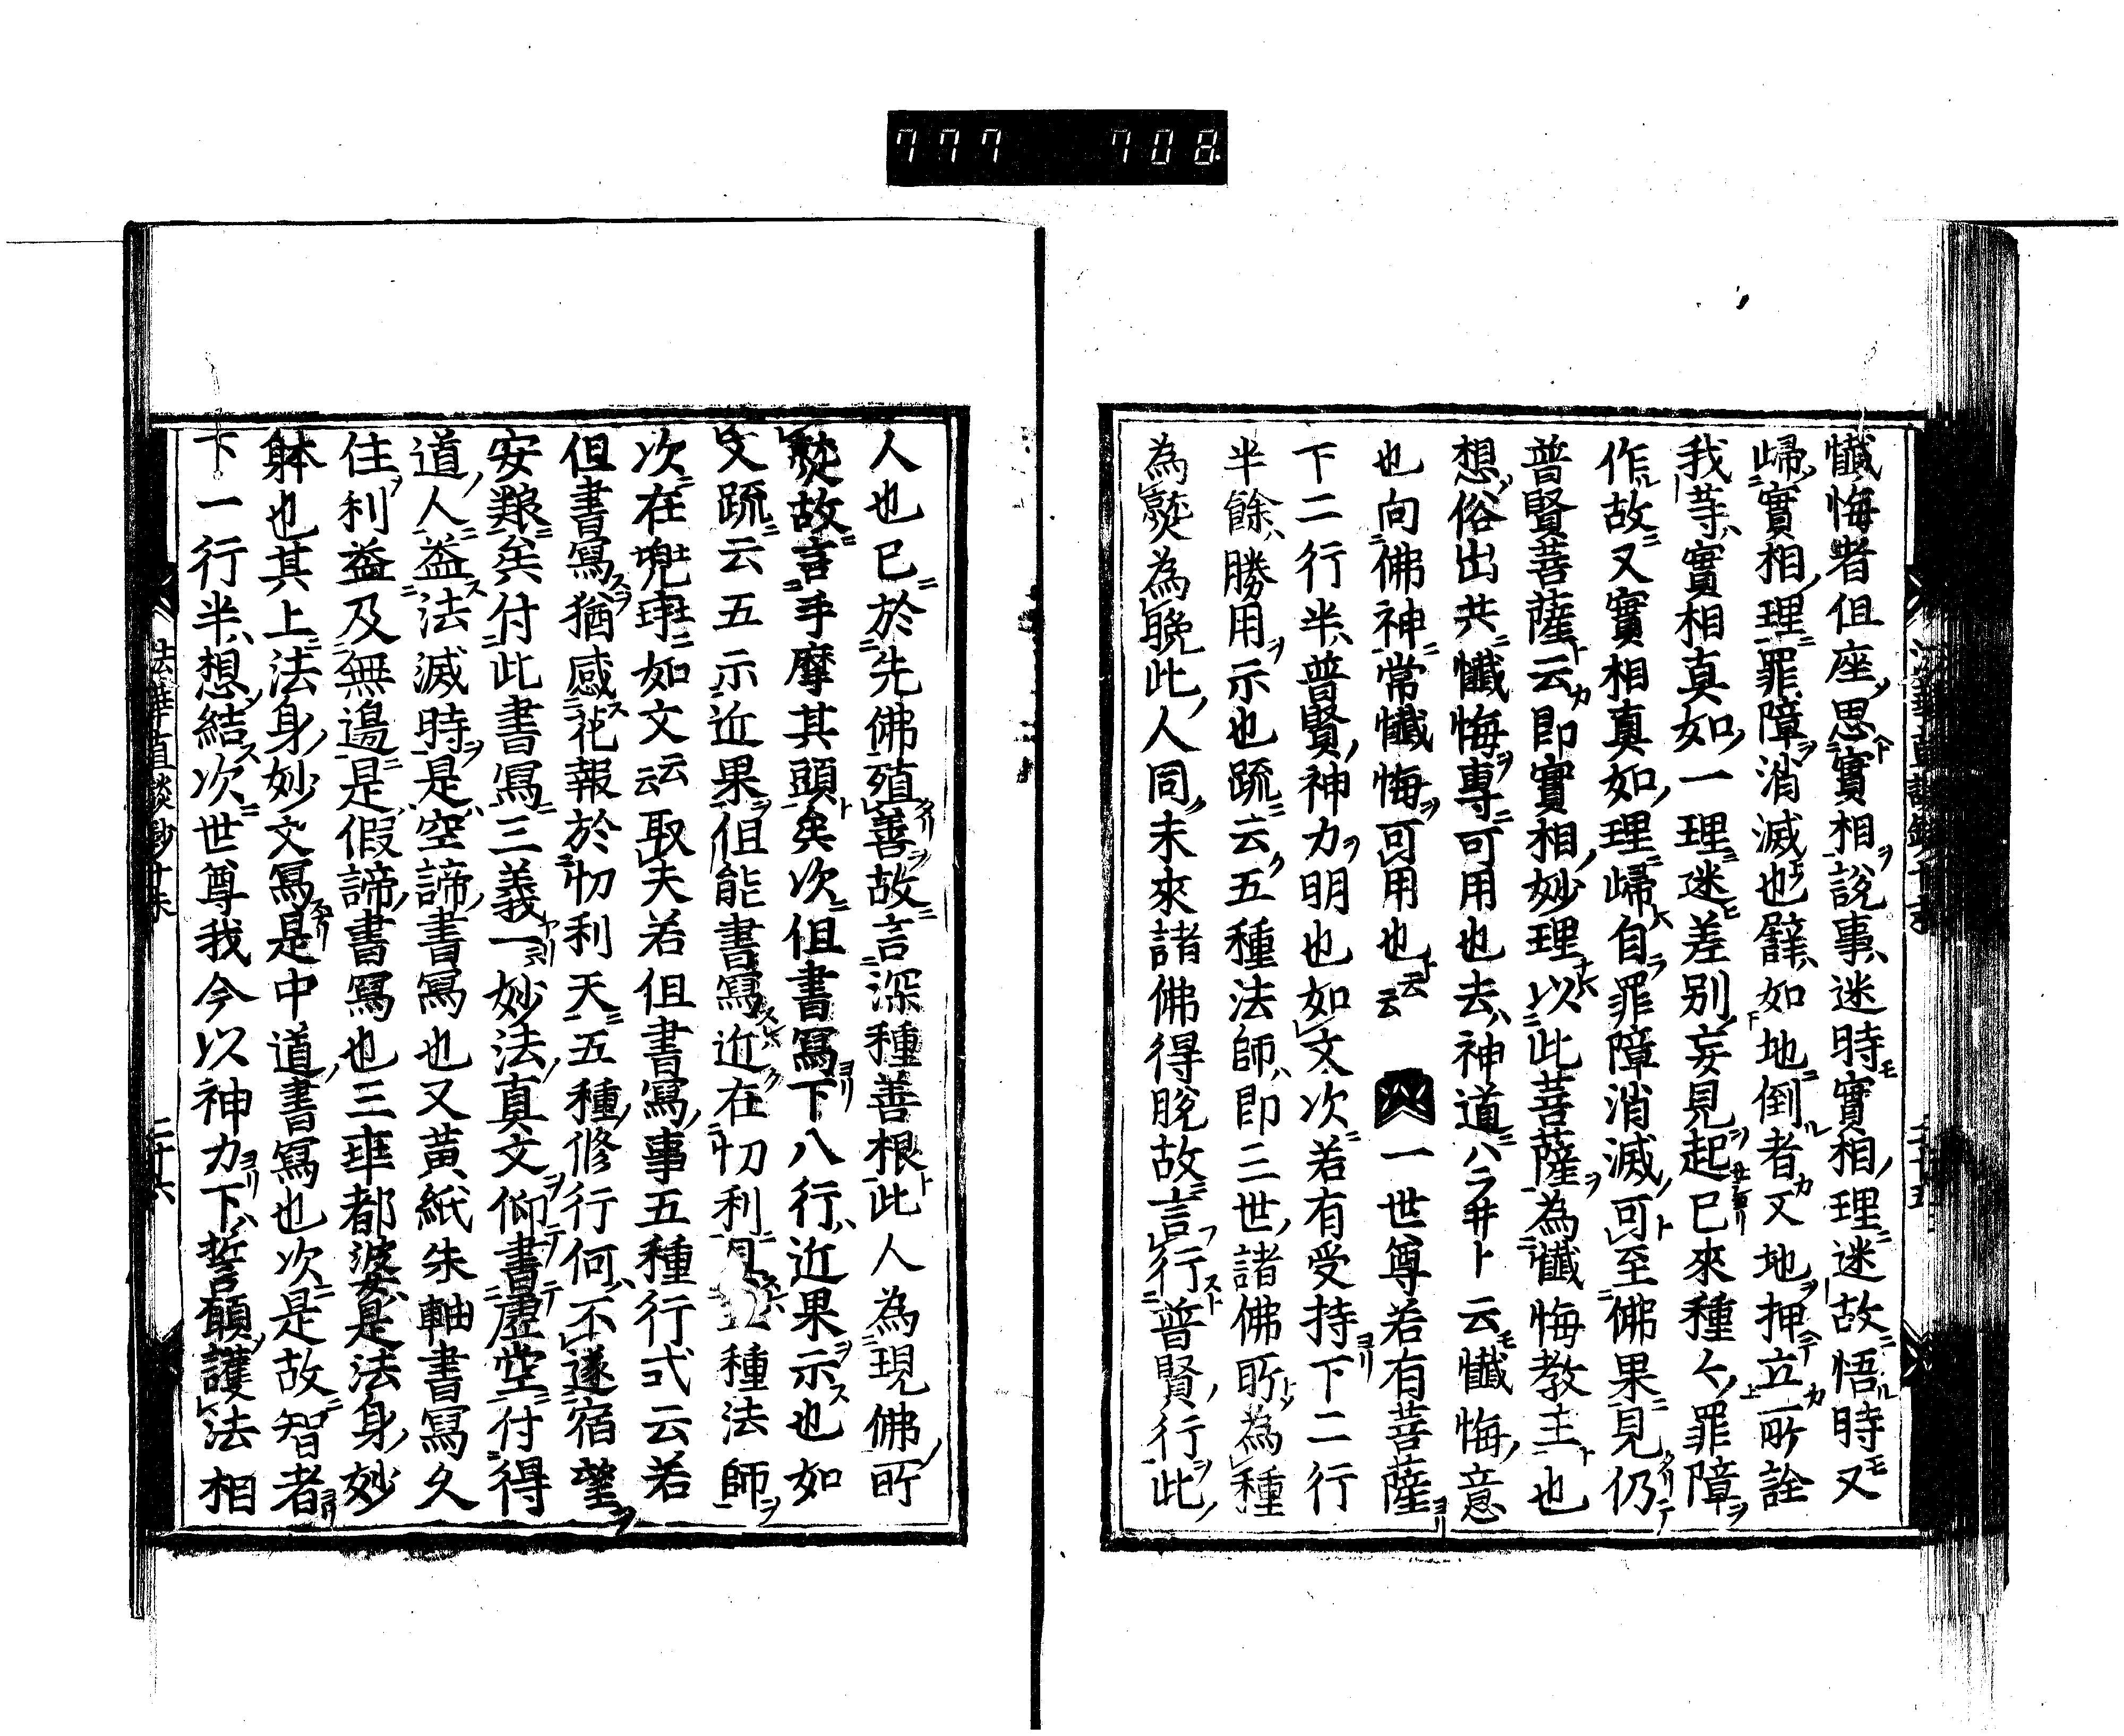 777 708
懺悔者但座思實相說事迷時實相理迷故悟時又
歸實相理罪障消滅也譬如地倒者又地押立所詮
我等實相真如一理迷差別妄見起已來種々罪障
作故又實相真如理歸自罪障消滅可至佛果見仍
普賢菩薩云即實相妙理以此菩薩為懺悔教主也
想俗出共懺悔專可用也去神道ハラヰト云懺悔意
也向佛神常懺悔可用也云云 一世尊若有菩薩
下二行半普賢神力明也如文次若有受持下二行
半餘勝用示也疏云五種法師即三世諸佛所為種
為熟為脫此人同未來諸佛得脫故言行普賢行此
人也已於先佛殖善故言深種善根此人為現佛所
熟故言手摩其頭矣次但書寫下八行近果示也如
文疏云五示近果但能書寫近在忉利 種法師
次在兜率如文云云取夫若但書寫事五種行式云若
但書寫猶感花報於忉利天五種修行何不遂宿望
安艱矣付此書寫三義一妙法真文仰書虛空付得
道人益法滅時是空諦書寫也又黃紙朱軸書寫久
住利益及無邊是假諦書寫也三率都婆是法身妙
躰也其上法身妙文寫是中道書寫也次是故智者
下一行半想結次世尊我今以神力下誓願護法相
法華直談鈔十末 二十六